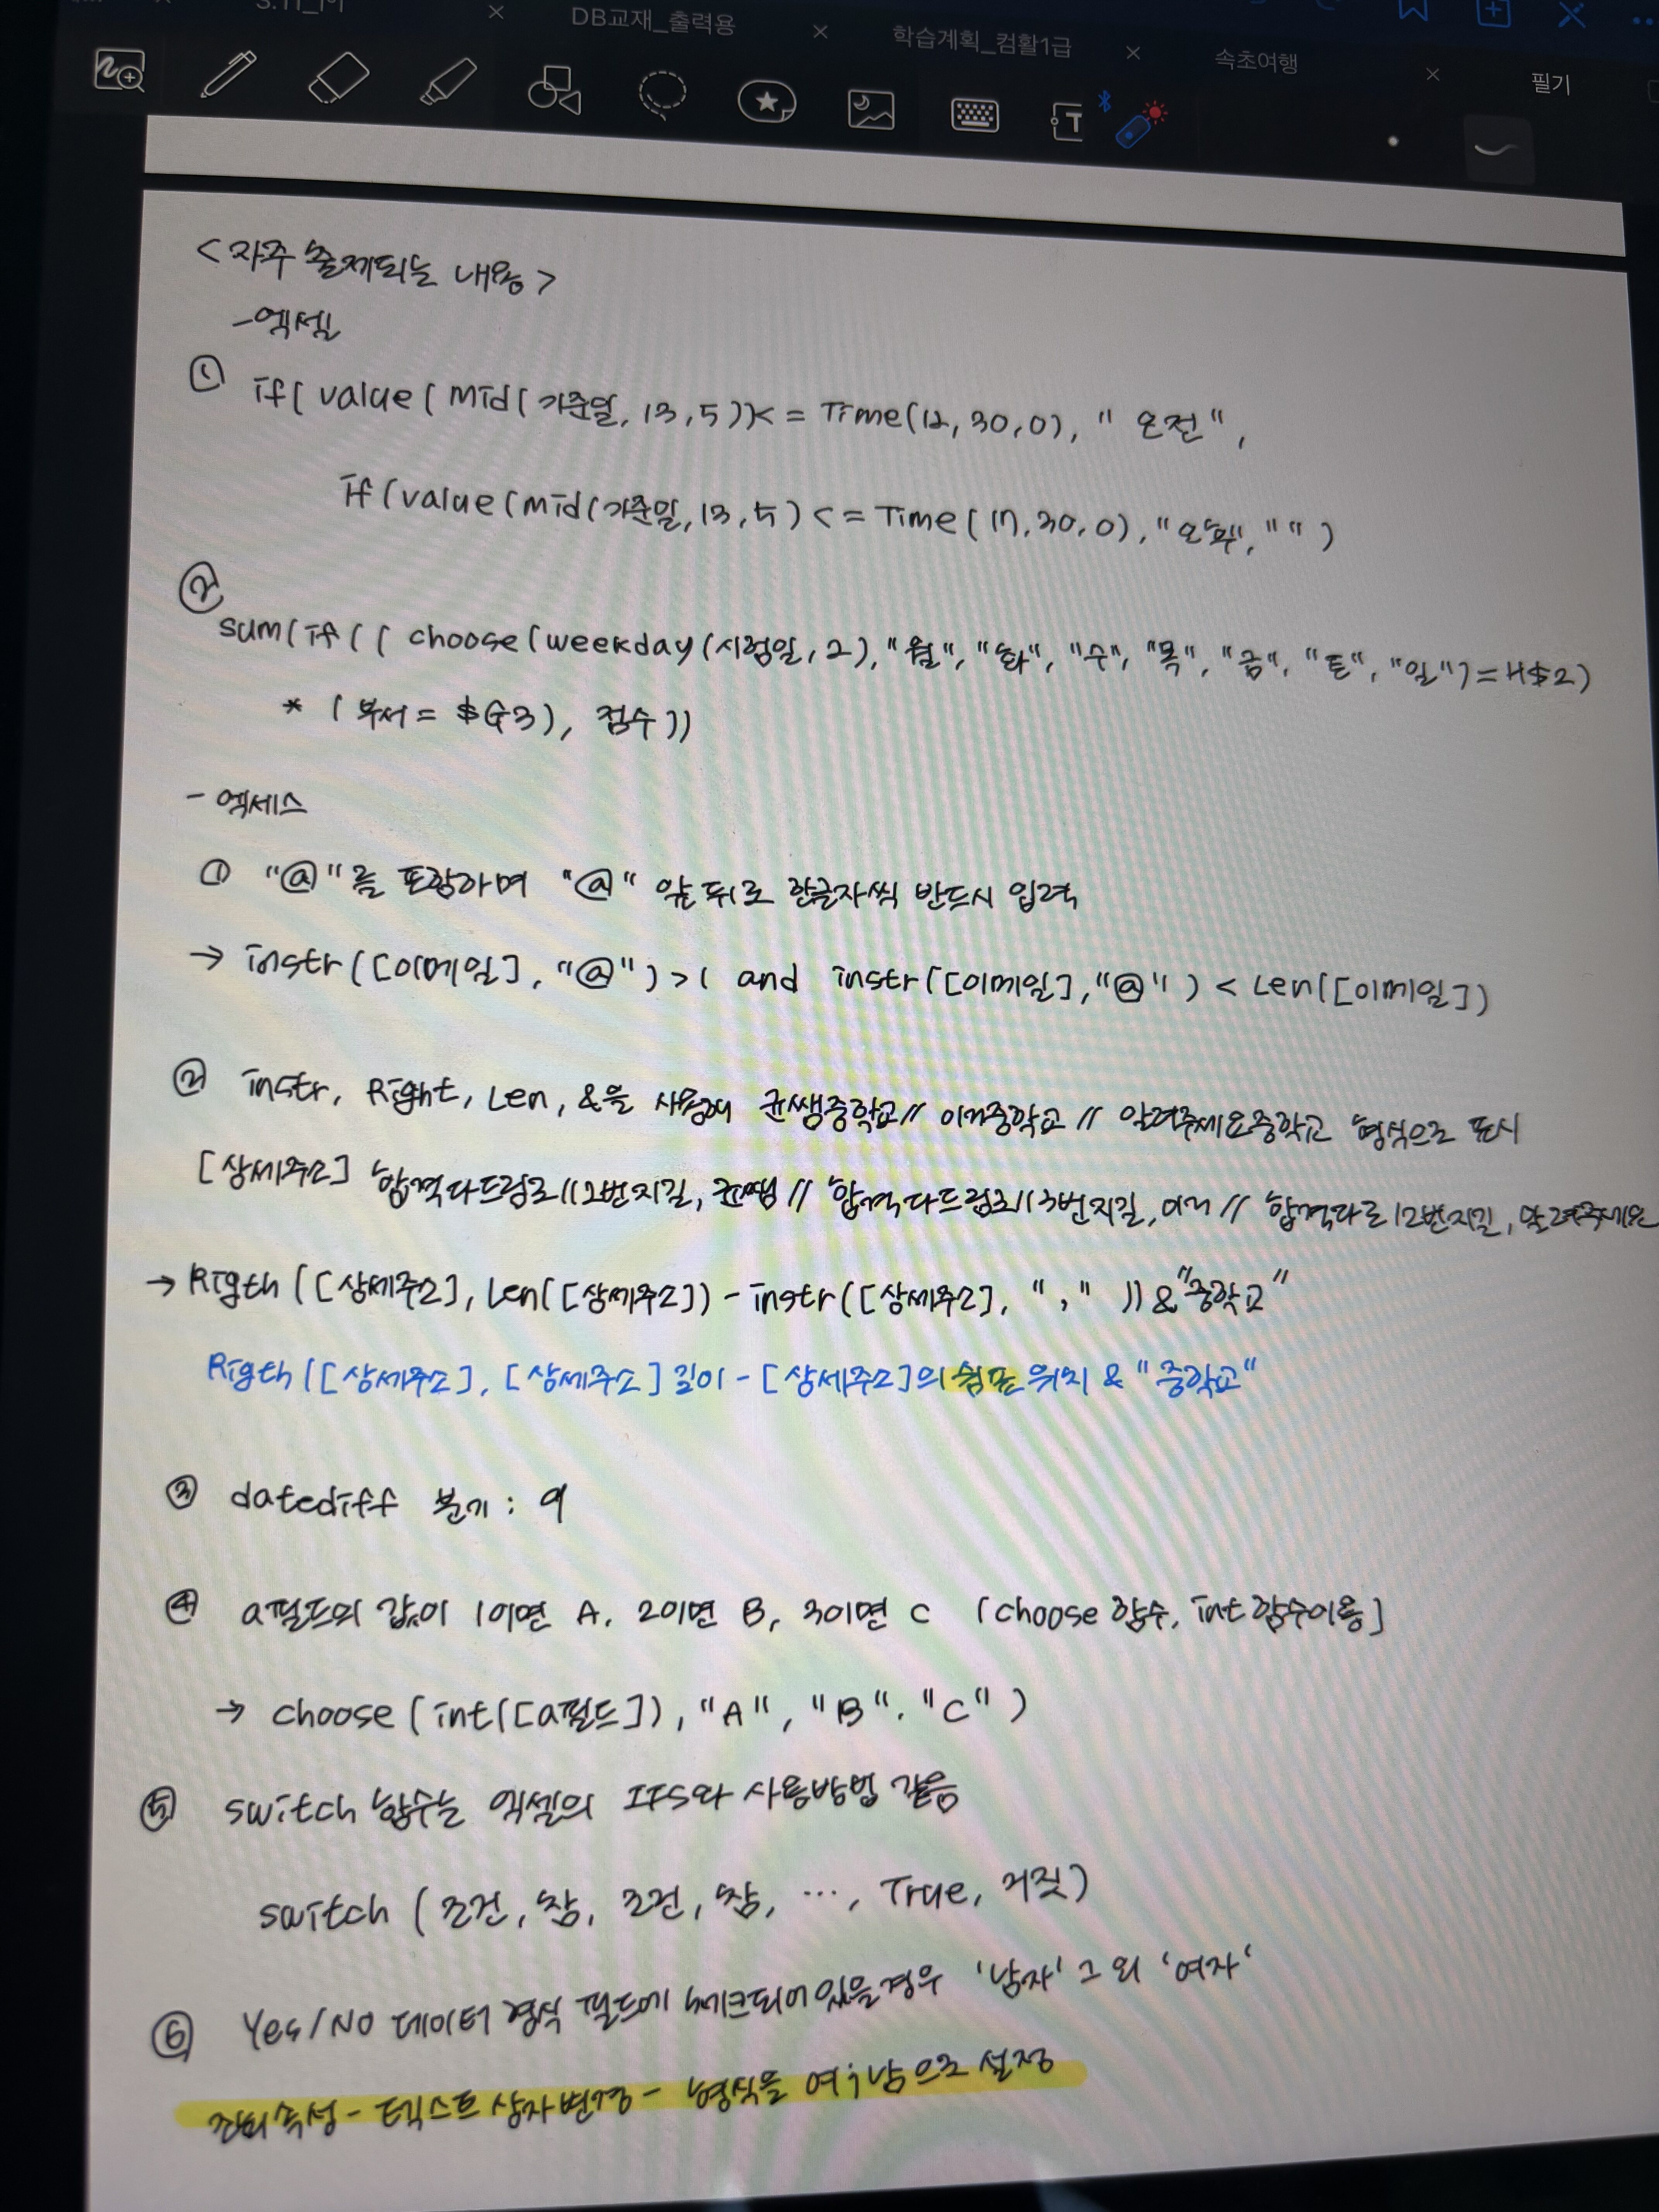 DB교재_출력용
학습계획_컴활1급
속초여행
필기
<자주 출제되는 내용>
-엑셀
① if( value( mid( 기준일, 13,5))<= Time(12,30,0), "오전",
if(value(mid(기준일,13,5)<= Time(17,30,0),"오후", "" )
②
sum(if(( choose(weekday(시험일,2),"월", "화", "수", "목", "금", "토", "일")=H$2)
* (부서= $G3), 점수))
- 엑세스
① "@"를 포함하며 "@" 앞뒤로 한글자씩 반드시 입력
→ instr([이메일], "@")>1 and instr([이메일],"@" ) < Len([이메일])
② instr, Right, Len, &을 사용해 균쌤중학교// 이거중학교 // 알려주세요중학교 형식으로 표시
[상세주소] 합격다드림로112번지길, 균쌤 // 합격다드림로113번지길, 이거 // 합격다로12번지길, 알려주세요
→ Rigth ([상세주소], Len([상세주소]) - instr([상세주소], "," )) & "중학교"
Rigth ([상세주소], [상세주소] 길이 - [상세주소]의 쉼표 위치 & "중학교"
③ datediff 분기 : q
④ a필드의 값이 1이면 A, 2이면 B, 3이면 C (choose 함수, int함수이용]
→ choose (int([a필드]), "A", "B". "C" )
⑤ switch 함수는 엑셀의 IFS와 사용방법 같음
switch (조건, 참, 조건, 참, ···, True, 거짓)
⑥ Yes/NO 데이터 형식 필드에 체크되어있을경우 '남자' 그 외 '여자'
조회속성 - 텍스트 상자변경 - 형식을 여;남으로 설정